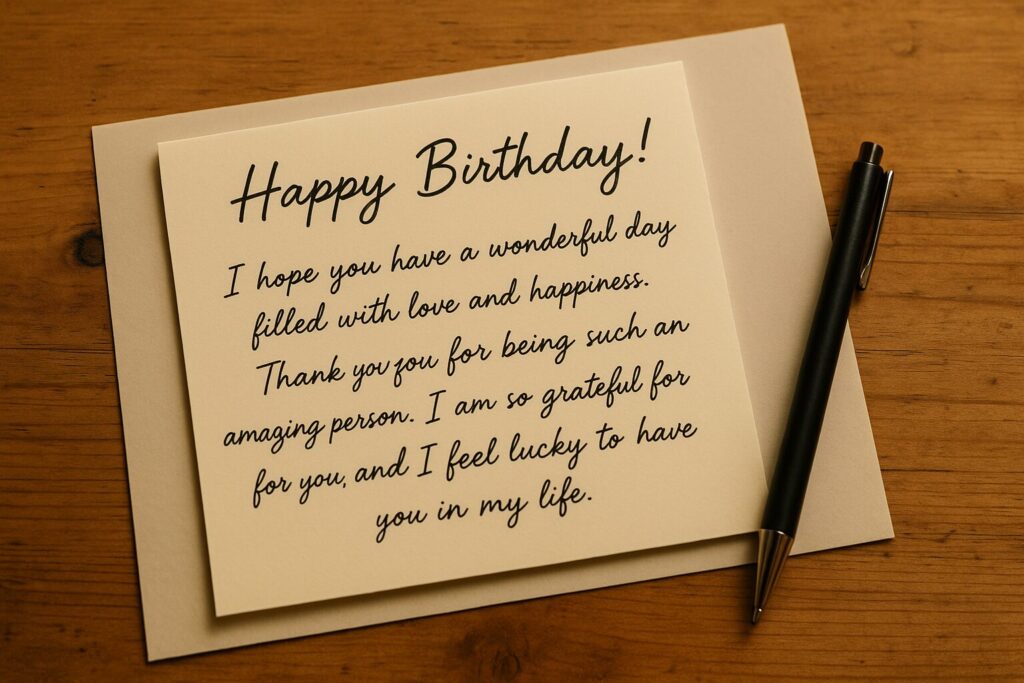 Happy Birthday!
I hope you have a wonderful day
filled with love and happiness.
Thank you you for being such an
amaging person. I am so grateful for
for you, and I feel lucky to have
you in my life.